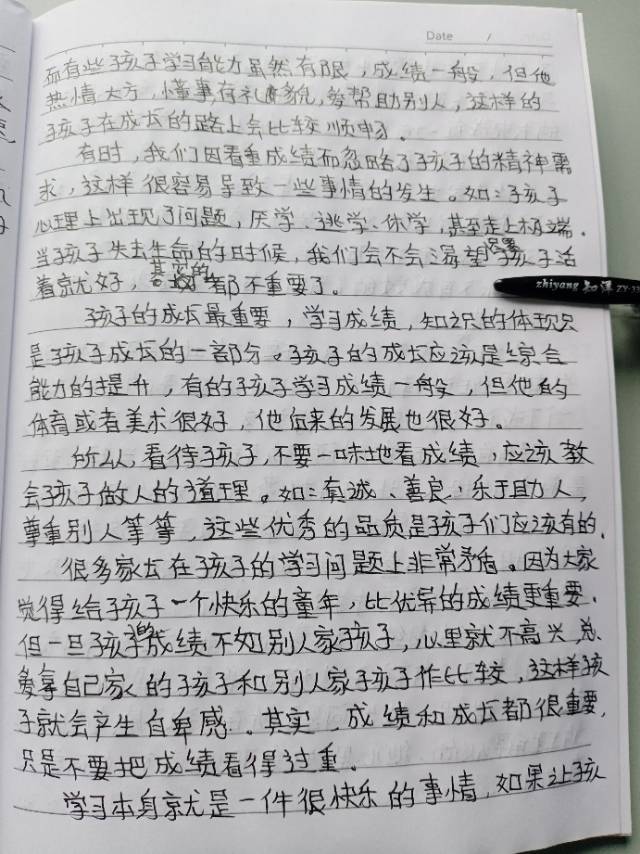 Date /
而有些孩子学习能力虽然有限，成绩一般，但他
热情大方，懂事有礼貌，多帮助别人，这样的
孩子在成长的路上会比较顺畅。
有时，我们因看重成绩而忽略了孩子的精神需
求，这样很容易导致一些事情的发生。如：孩子
心理上出现了问题，厌学、逃学、休学，甚至走上极端。
当孩子失去生命的时候，我们会不会渴望孩子活
着就好，其它的都不重要了。
zhiyang 知洋 ZY-
孩子的成长最重要，学习成绩，知识的体现只
是孩子成长的一部分。孩子的成长应该是综合
能力的提升，有的孩子学习成绩一般，但他的
体育或者美术很好，他在来的发展也很好。
所以，看待孩子，不要一味地看成绩，应该教
会孩子做人的道理。如：真诚、善良，乐于助人，
尊重别人等等，这些优秀的品质是孩子们应该有的。
很多家长在孩子的学习问题上非常矛盾。因为大家
觉得给孩子一个快乐的童年，比优异的成绩更重要。
但一旦孩子的成绩不如别人家孩子，心里就不高兴，总
爱拿自己家的孩子和别人家孩子作比较，这样孩
子就会产生自卑感。其实，成绩和成长都很重要，
只是不要把成绩看得过重。
学习本身就是一件很快乐的事情，如果让孩